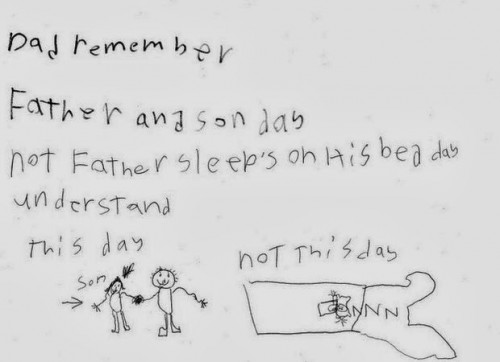 Dad remember
Father and son day
not Father sleep's on His bed day
understand
this day
not This day
son
NNN